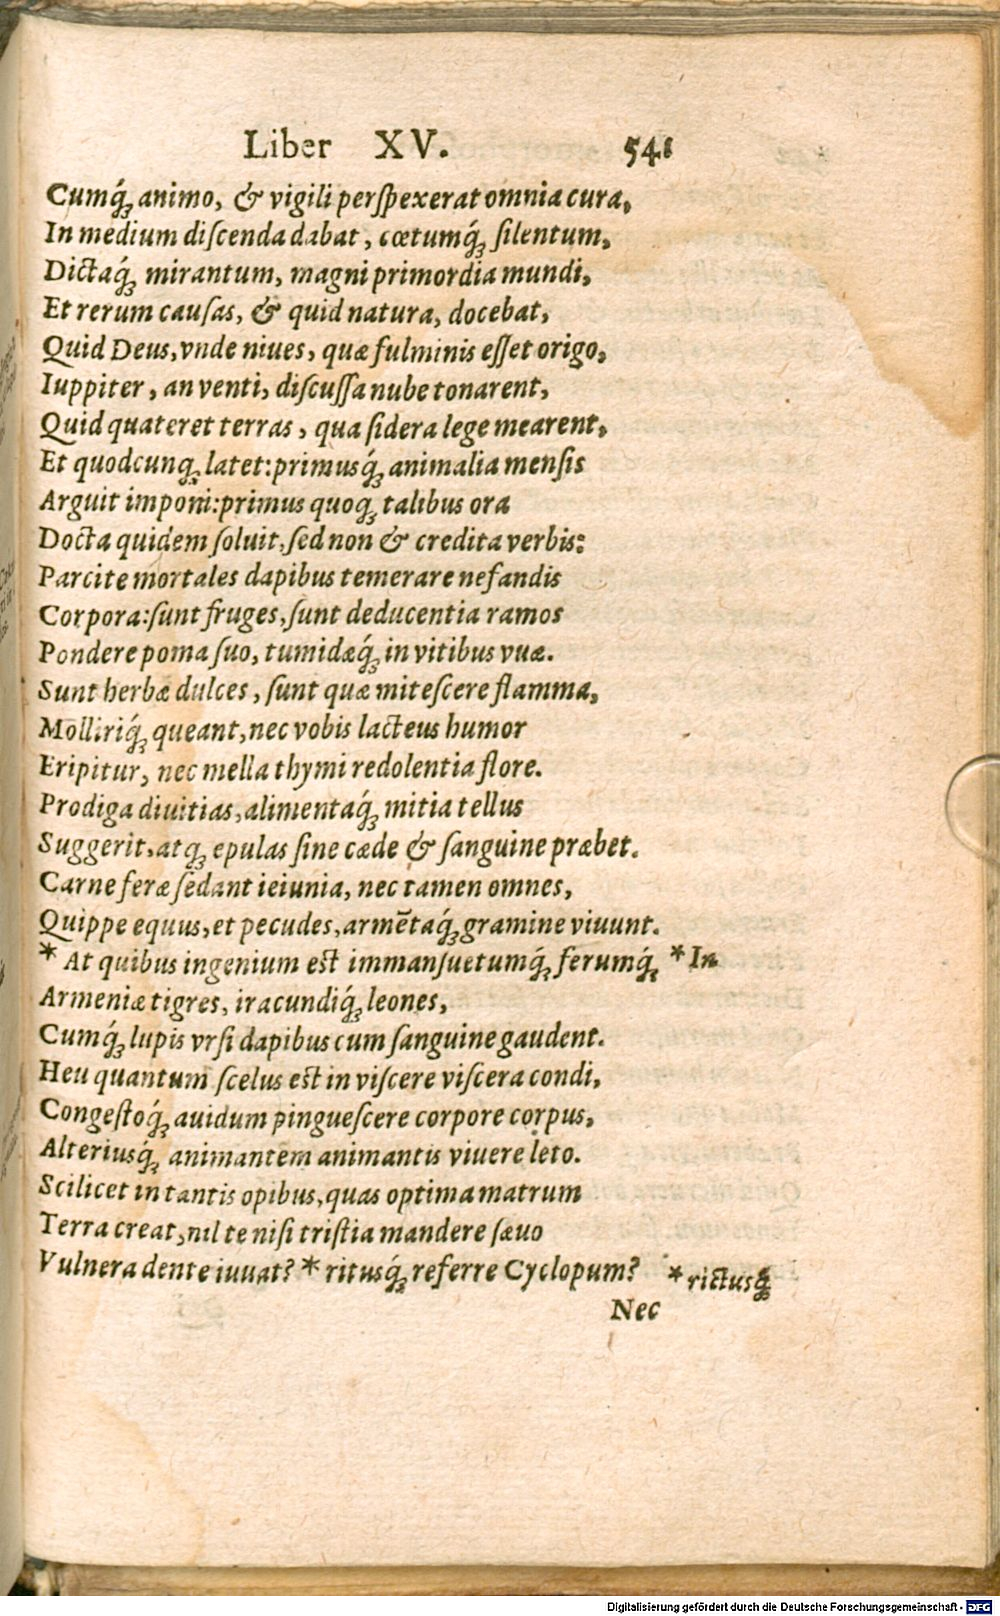 Liber XV. 541
Cumq́ꝫ animo, & vigili perſpexerat omnia cura,
In medium diſcenda dabat, cœtumq́ꝫ ſilentum,
Dictaq́ꝫ mirantum, magni primordia mundi,
Et rerum cauſas, & quid natura, docebat,
Quid Deus, vnde niues, quæ fulminis eſſet origo,
Iuppiter, an venti, diſcuſſa nube tonarent,
Quid quateret terras, qua ſidera lege mearent,
Et quodcunqꝫ latet: primusq́ꝫ animalia menſis
Arguit imponi: primus quoqꝫ talibus ora
Docta quidem ſoluit, ſed non & credita verbis:
Parcite mortales dapibus temerare nefandis
Corpora: ſunt fruges, ſunt deducentia ramos
Pondere poma ſuo, tumidæq́ꝫ in vitibus vuæ.
Sunt herbæ dulces, ſunt quæ miteſcere flamma,
Molliriq́ꝫ queant, nec vobis lacteus humor
Eripitur, nec mella thymi redolentia flore.
Prodiga diuitias, alimentaq́ꝫ mitia tellus
Suggerit, atqꝫ epulas ſine cæde & ſanguine præbet.
Carne feræ ſedant ieiunia, nec tamen omnes,
Quippe equus, et pecudes, armētaq́ꝫ gramine viuunt.
* At quibus ingenium est immanſuetumq́ꝫ ferumq́ꝫ * In
Armeniæ tigres, iracundiq́ꝫ leones,
Cumq́ꝫ lupis vrſi dapibus cum ſanguine gaudent.
Heu quantum ſcelus est in viſcere viſcera condi,
Congeſtoq́ꝫ auidum pingueſcere corpore corpus,
Alteriusq́ꝫ animantem animantis viuere leto.
Scilicet in tantis opibus, quas optima matrum
Terra creat, nil te niſi triſtia mandere ſæuo
Vulnera dente iuuat? * ritusq́ꝫ referre Cyclopum? * rictusq́ꝫ
Nec
Digitalisierung gefördert durch die Deutsche Forschungsgemeinschaft - DFG